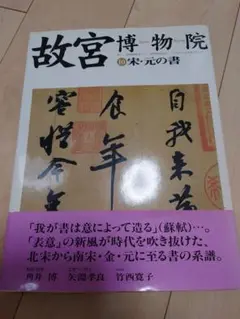 故宮博物院
⑩宋・元の書
自我来
食年
容惜今年
「我が書は意によって造る」(蘇軾)…。
「表意」の新風が時代を吹き抜けた。
北宋から南宋・金・元に至る書の系譜。
角井 博 矢淵孝良 竹西寛子